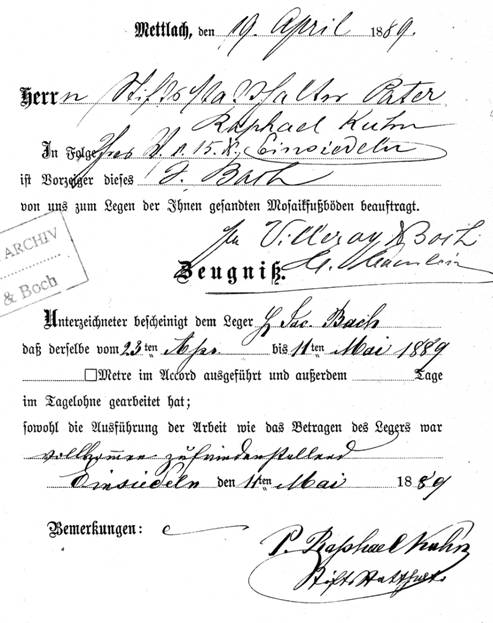 Mettlach, den 19. April 1889.
Herrn Stiftsstatthalter Pater
Raphael Kuhn
Einsiedeln
In Folge Ihres V. v. 15. d.
ist Vorzeiger dieses J. Bach
von uns zum Legen der Ihnen gesandten Mosaikfußböden beauftragt.
ARCHIV
& Boch
Villeroy & Boch
Zeugniß.
Unterzeichneter bescheinigt dem Leger H Jac. Bach
daß derselbe vom 23ten Apr. bis 11ten Mai 1889
□Metre im Accord ausgeführt und außerdem Tage
im Tagelohne gearbeitet hat;
sowohl die Ausführung der Arbeit wie das Betragen des Legers war
vollkommen zufriedenstellend
Einsiedeln den 11ten Mai 1889
Bemerkungen:
P. Raphael Kuhn
Stiftsstatthalter